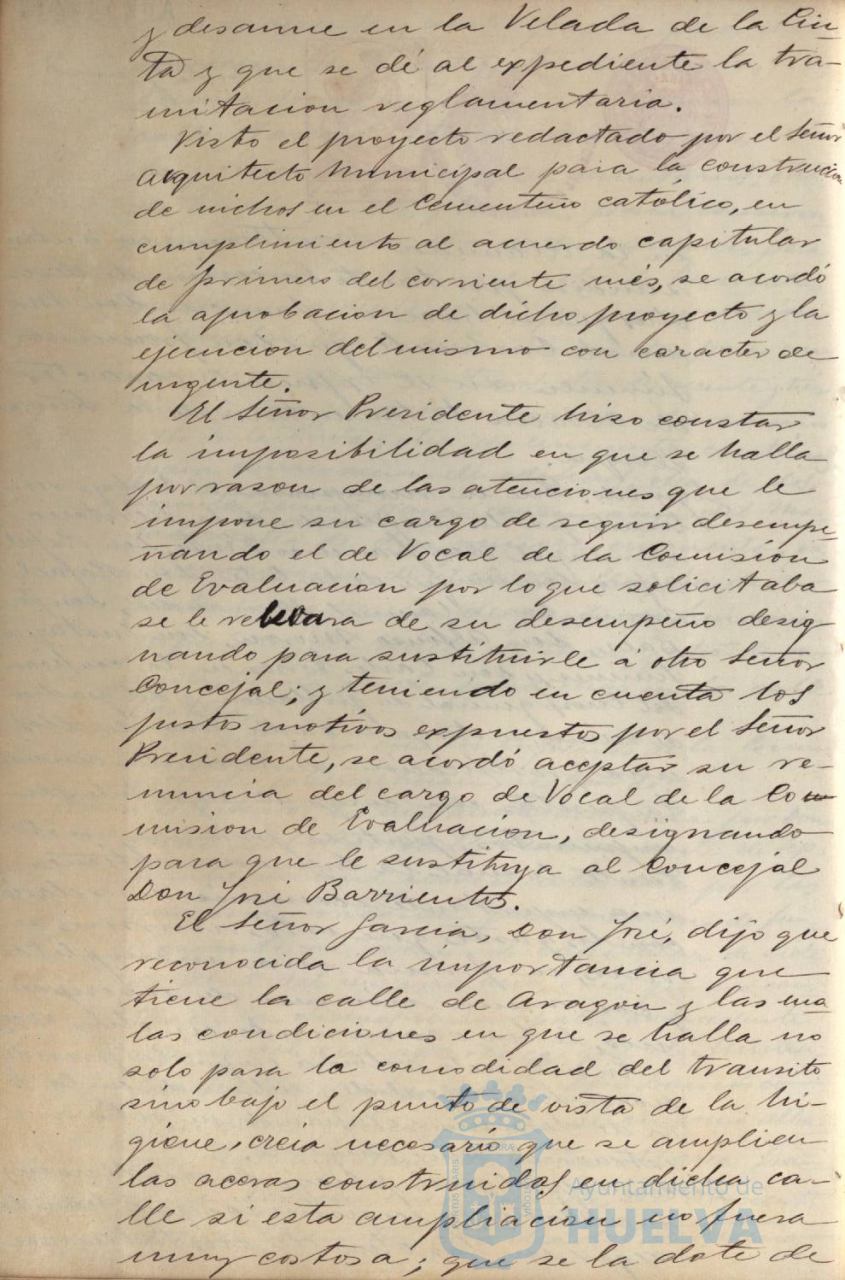 y desarme en la Velada de la Cin-
ta y que se dé al expediente la tra-
mitacion reglamentaria.
Visto el proyecto redactado por el Señor
Arquitecto Municipal para la construccion
de nichos en el Cementerio católico, en
cumplimiento al acuerdo capitular
de primero del corriente més, se acordó
la aprobacion de dicho proyecto y la
ejecucion del mismo con caracter de
urgente.
El Señor Presidente hizo constar
la imposibilidad en que se halla
por rason de las atenciones que le
impone su cargo de seguir desempe-
ñando el de Vocal de la Comision
de Evaluacion por lo que solicitaba
se le relevara de su desempeño desig
nando para sustituirle á otro Señor
Concejal; y teniendo en cuenta los
justos motivos expuestos por el Señor
Presidente, se acordó aceptar su re-
nuncia del cargo de Vocal de la Co-
mision de Evaluacion, designando
para que le sustituya al Concejal
Don José Barrientos.
El Señor Garcia, Don José, dijo que
reconocida la importancia que
tiene la calle de Aragon y las ma
las condiciones en que se halla no
solo para la comodidad del transito
sino bajo el punto de vista de la hi-
giene, creia necesario que se amplien
las aceras construidas en dicha ca-
lle si esta ampliacion no fuera
muy costosa; que se la dote de
Ayuntamiento de
HUELVA